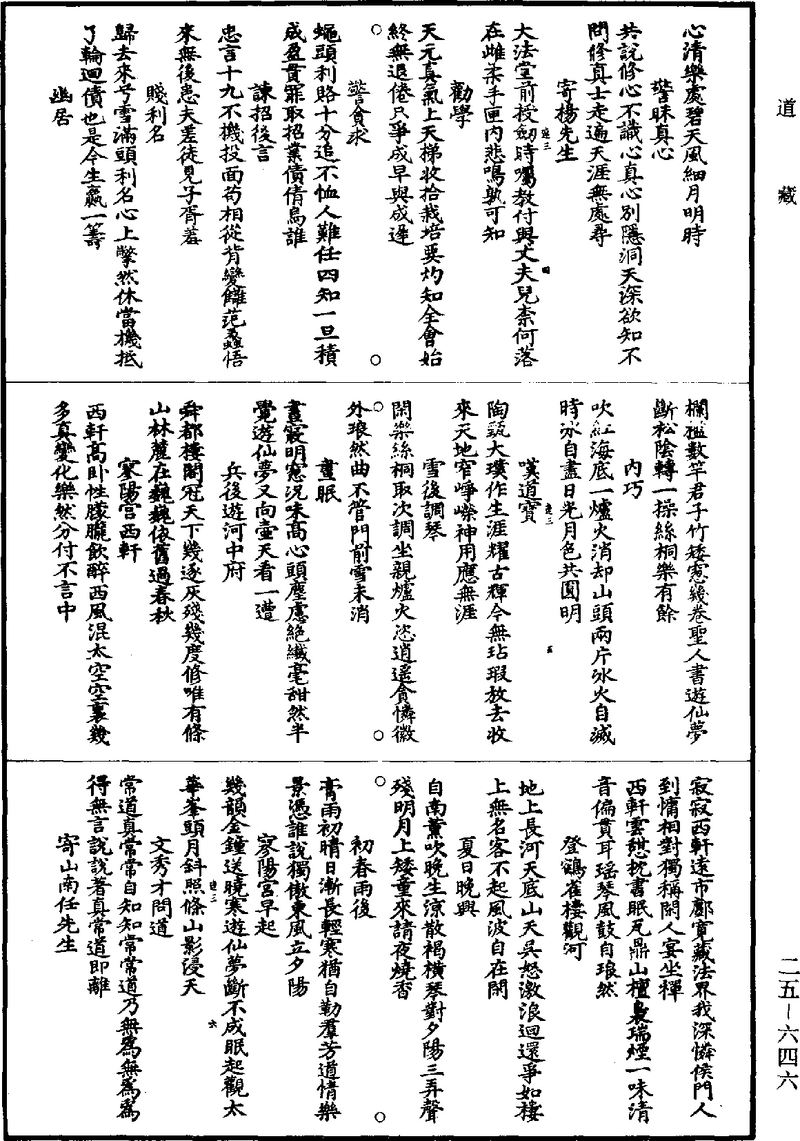 道藏
心清樂處碧天風細月明時
警昧真心
共説修心不識心真心別隱洞天深欲知不
問修真士走遍天涯無處尋
寄楊先生
大法堂前授劒時囑教付與丈夫兒柰何落
在雌柔手匣内悲鳴孰可知
勸學
天元真氣上天梯收拾栽培要灼知全會始
終無退倦只爭成早與成遲
警貪求
蠅頭利賂十分追不恤人難任四知一旦積
成盈貫罪取招業債倩烏誰
諫招後言
忠言十九不機投面苟相從背變讎范蠡悟
來無後患夫差徒見子胥羞
賤利名
歸去來兮雪滿頭利名心上㡀然休當機抵
了輪迴債也是今生贏一籌
幽居
欄檻數竿君子竹矮窻幾卷聖人書遊仙夢
斷松陰轉一操絲桐樂有餘
内巧
吹紅海底一爐火消却山頭兩片冰火自滅
時冰自盡日光月色共圓明
嘆道寶
陶甄大璞作生涯耀古輝今無玷瑕放去收
來天地窄崢嶸神用應無涯
雪後調琴
閑樂絲桐取次調坐親爐火恣逍遥貪憐徽
外琅然曲不管門前雪未消
晝眠
晝寢明窻況味高心頭塵慮絶纖毫甜然半
覺遊仙夢又向壷天看一遭
兵後遊河中府
舜都樓閣冠天下幾逐灰殘幾度修唯有條
山林麓在巍巍依舊過春秋
寥陽宫西軒
西軒高卧性朦朧飲醉西風混太空空裏幾
多真變化樂然分付不言中
寂寂西軒遠市鄽寛藏法界我深憐侯門人
到慵相對獨稱閑人宴坐禪
西軒雲憇枕書眠瓦鼎山檀裊瑞煙一味清
音偏貫耳瑶琴風鼓自琅然
登鸛雀樓觀河
地上長河天底山天吳怒激浪迴還爭如樓
上無名客不起風波自在閑
夏日晚興
自南薰吹晚生涼散褐横琴對夕陽三弄聲
殘明月上矮童來請夜燒香
初春雨後
膏雨初晴日漸長輕寒猶自勒羣芳道情樂
景憑誰說獨傲東風立夕陽
寥陽宫早起
幾韻金鐘送曉寒遊仙夢斷不成眠起觀太
華峯頭月斜照條山影浸天
文秀才問道
常道真常常自知知常常道乃無爲無爲爲
得無言說說著真常道即離
寄山南任先生
二五－六四六